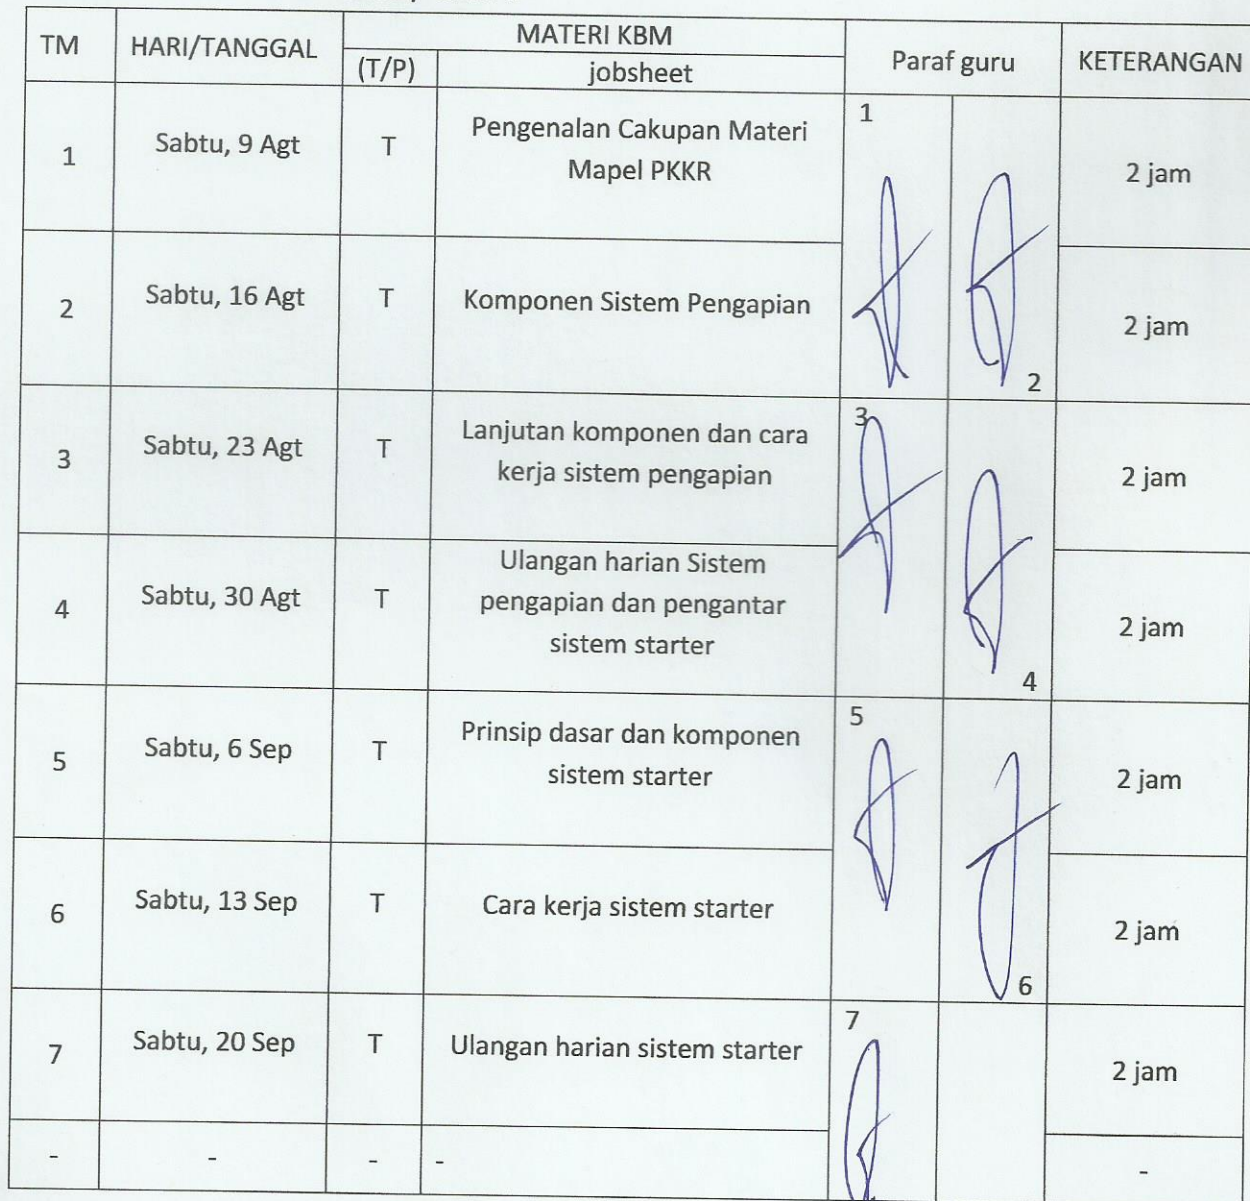 TM HARI/TANGGAL MATERI KBM Paraf guru KETERANGAN
(T/P) jobsheet
1 Sabtu, 9 Agt T Pengenalan Cakupan Materi 1 2 jam
Mapel PKKR
2 Sabtu, 16 Agt T Komponen Sistem Pengapian 2 2 jam
3 Sabtu, 23 Agt T Lanjutan komponen dan cara 3 2 jam
kerja sistem pengapian
4 Sabtu, 30 Agt T Ulangan harian Sistem 4 2 jam
pengapian dan pengantar
sistem starter
5 Sabtu, 6 Sep T Prinsip dasar dan komponen 5 2 jam
sistem starter
6 Sabtu, 13 Sep T Cara kerja sistem starter 6 2 jam
7 Sabtu, 20 Sep T Ulangan harian sistem starter 7 2 jam
- - - - -